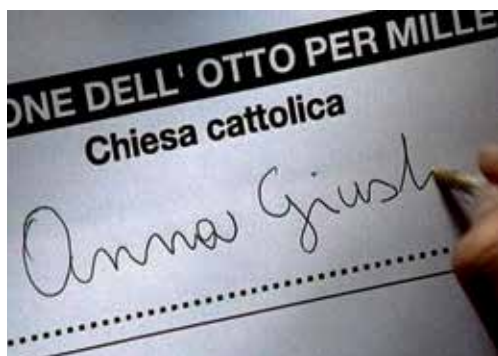 ONE DELL' OTTO PER MILLE
Chiesa cattolica
Anna Giusti